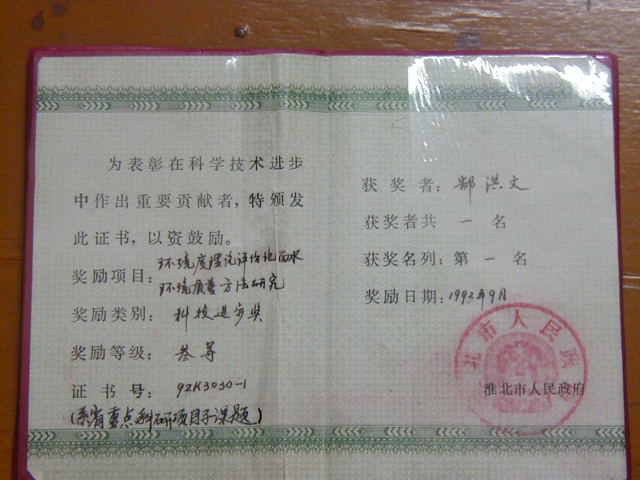 为表彰在科学技术进步
中作出重要贡献者，特颁发
此证书，以资鼓励。
奖励项目：环境度理论评价地面水
环境质量方法研究
奖励类别：科技进步奖
奖励等级：叁等
证书号：92K3030-1
(系省重点科研项目子课题)
获奖者：郜洪文
获奖者共一名
获奖名列：第一名
奖励日期：1992年9月
北市人民政
淮北市人民政府